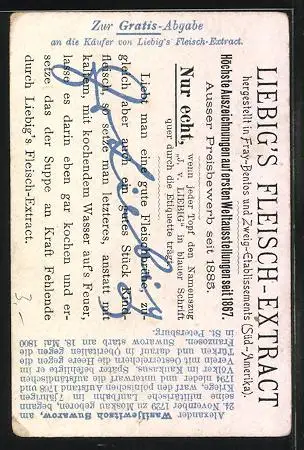 Zur Gratis-Abgabe
an die Käufer von Liebig's Fleisch-Extract.
LIEBIG'S FLEISCH-EXTRACT
hergestellt in Fray-Bentos und Zweig-Etablissements (Süd-Amerika).
Höchste Auszeichnungen auf ersten Weltausstellungen seit 1867.
Ausser Preisbewerb seit 1885.
Nur echt, wenn jeder Topf den Namenszug
„J. v. LIEBIG" in blauer Schrift
quer durch die Etiquette trägt.
Liebt man eine gute Fleischbrühe, zu-
gleich aber auch ein gutes Stück Rind-
fleisch, so setze man letzteres, anstatt mit
kaltem, mit kochendem Wasser auf's Feuer,
lasse es darin eben gar kochen und er-
setze das der Suppe an Kraft Fehlende
durch Liebig's Fleisch-Extract.
J v Liebig
Alexander
Wasiljewitsch Suwarow, geboren am
24. November 1729 zu Moskau, begann
seine militärische Laufbahn im 7jährigen
Kriege, warf den polnischen Aufstand 1768 und
1794 nieder und unterwarf die aufständischen
Völker im Kaukasus. Später befehligte er im
Verein mit Oesterreichern die Heere gegen die
Türken und darauf in Oberitalien gegen die
Franzosen. Suwarow starb am 18. Mai 1800
in St. Petersburg.